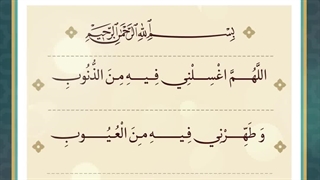 بِسْمِ اللهِ الرَّحْمٰنِ الرَّحِيْمِ
اللَّهُمَّ اغْسِلْنِي فِيهِ مِنَ الذُّنُوبِ
وَ طَهِّرْنِي فِيهِ مِنَ الْعُيُوبِ